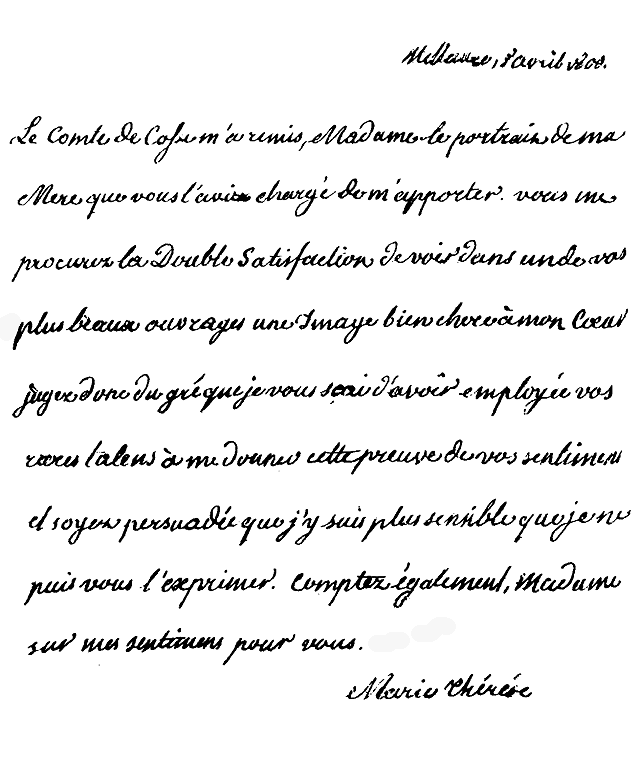 Mittau, 8 avril 1800.
Le Comte de Cossé m'a remis, Madame le portrait de ma
Mere que vous l'aviez chargé de m'apporter. vous me
procurez la Double Satisfaction de voir dans un de vos
plus beaux ouvrages une Image bien chere à mon Cœur
jugez donc du gré que je vous sçai d'avoir employée vos
rares talens à me donner cette preuve de vos sentimens
et soyez persuadée que j'y suis plus sensible que je ne
puis vous l'exprimer. Comptez également, Madame
sur mes sentimens pour vous.
Marie Thérése